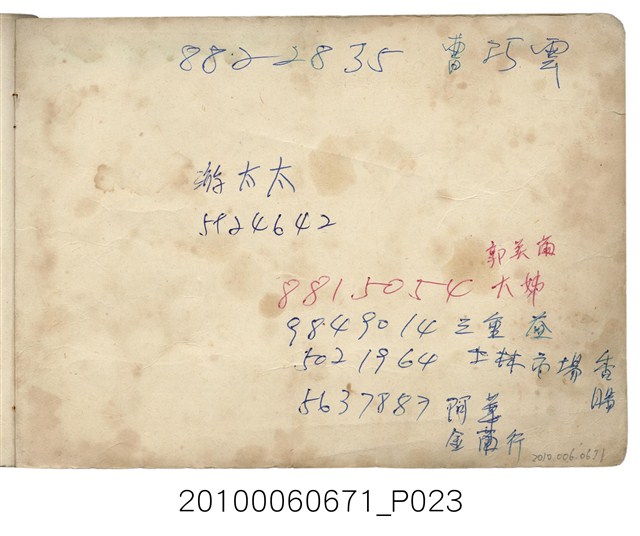 882-2835 曹巧雲
游太太
5924642
郭美蘭
8815054 大姊
9849014 三重 益
5021964 士林市場 香腸
5637887 阿華
金蘭行
2010.006.0671
20100060671_P023